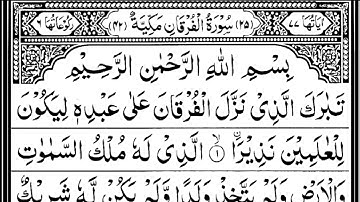 اٰيَاتُهَا ٧٧ (٢٥) سُوْرَةُ الْفُرْقَانِ مَكِّيَّةٌ (٤٢) رُكُوْعَاتُهَا ٦
بِسْمِ اللّٰهِ الرَّحْمٰنِ الرَّحِيْمِ
تَبٰرَكَ الَّذِيْ نَزَّلَ الْفُرْقَانَ عَلٰى عَبْدِهٖ لِيَكُوْنَ
لِلْعٰلَمِيْنَ نَذِيْرًا ۙ﴿١﴾ الَّذِيْ لَهٗ مُلْكُ السَّمٰوٰتِ
وَالْاَرْضِ وَلَمْ يَتَّخِذْ وَلَدًا وَّلَمْ يَكُنْ لَّهٗ شَرِيْكٌ